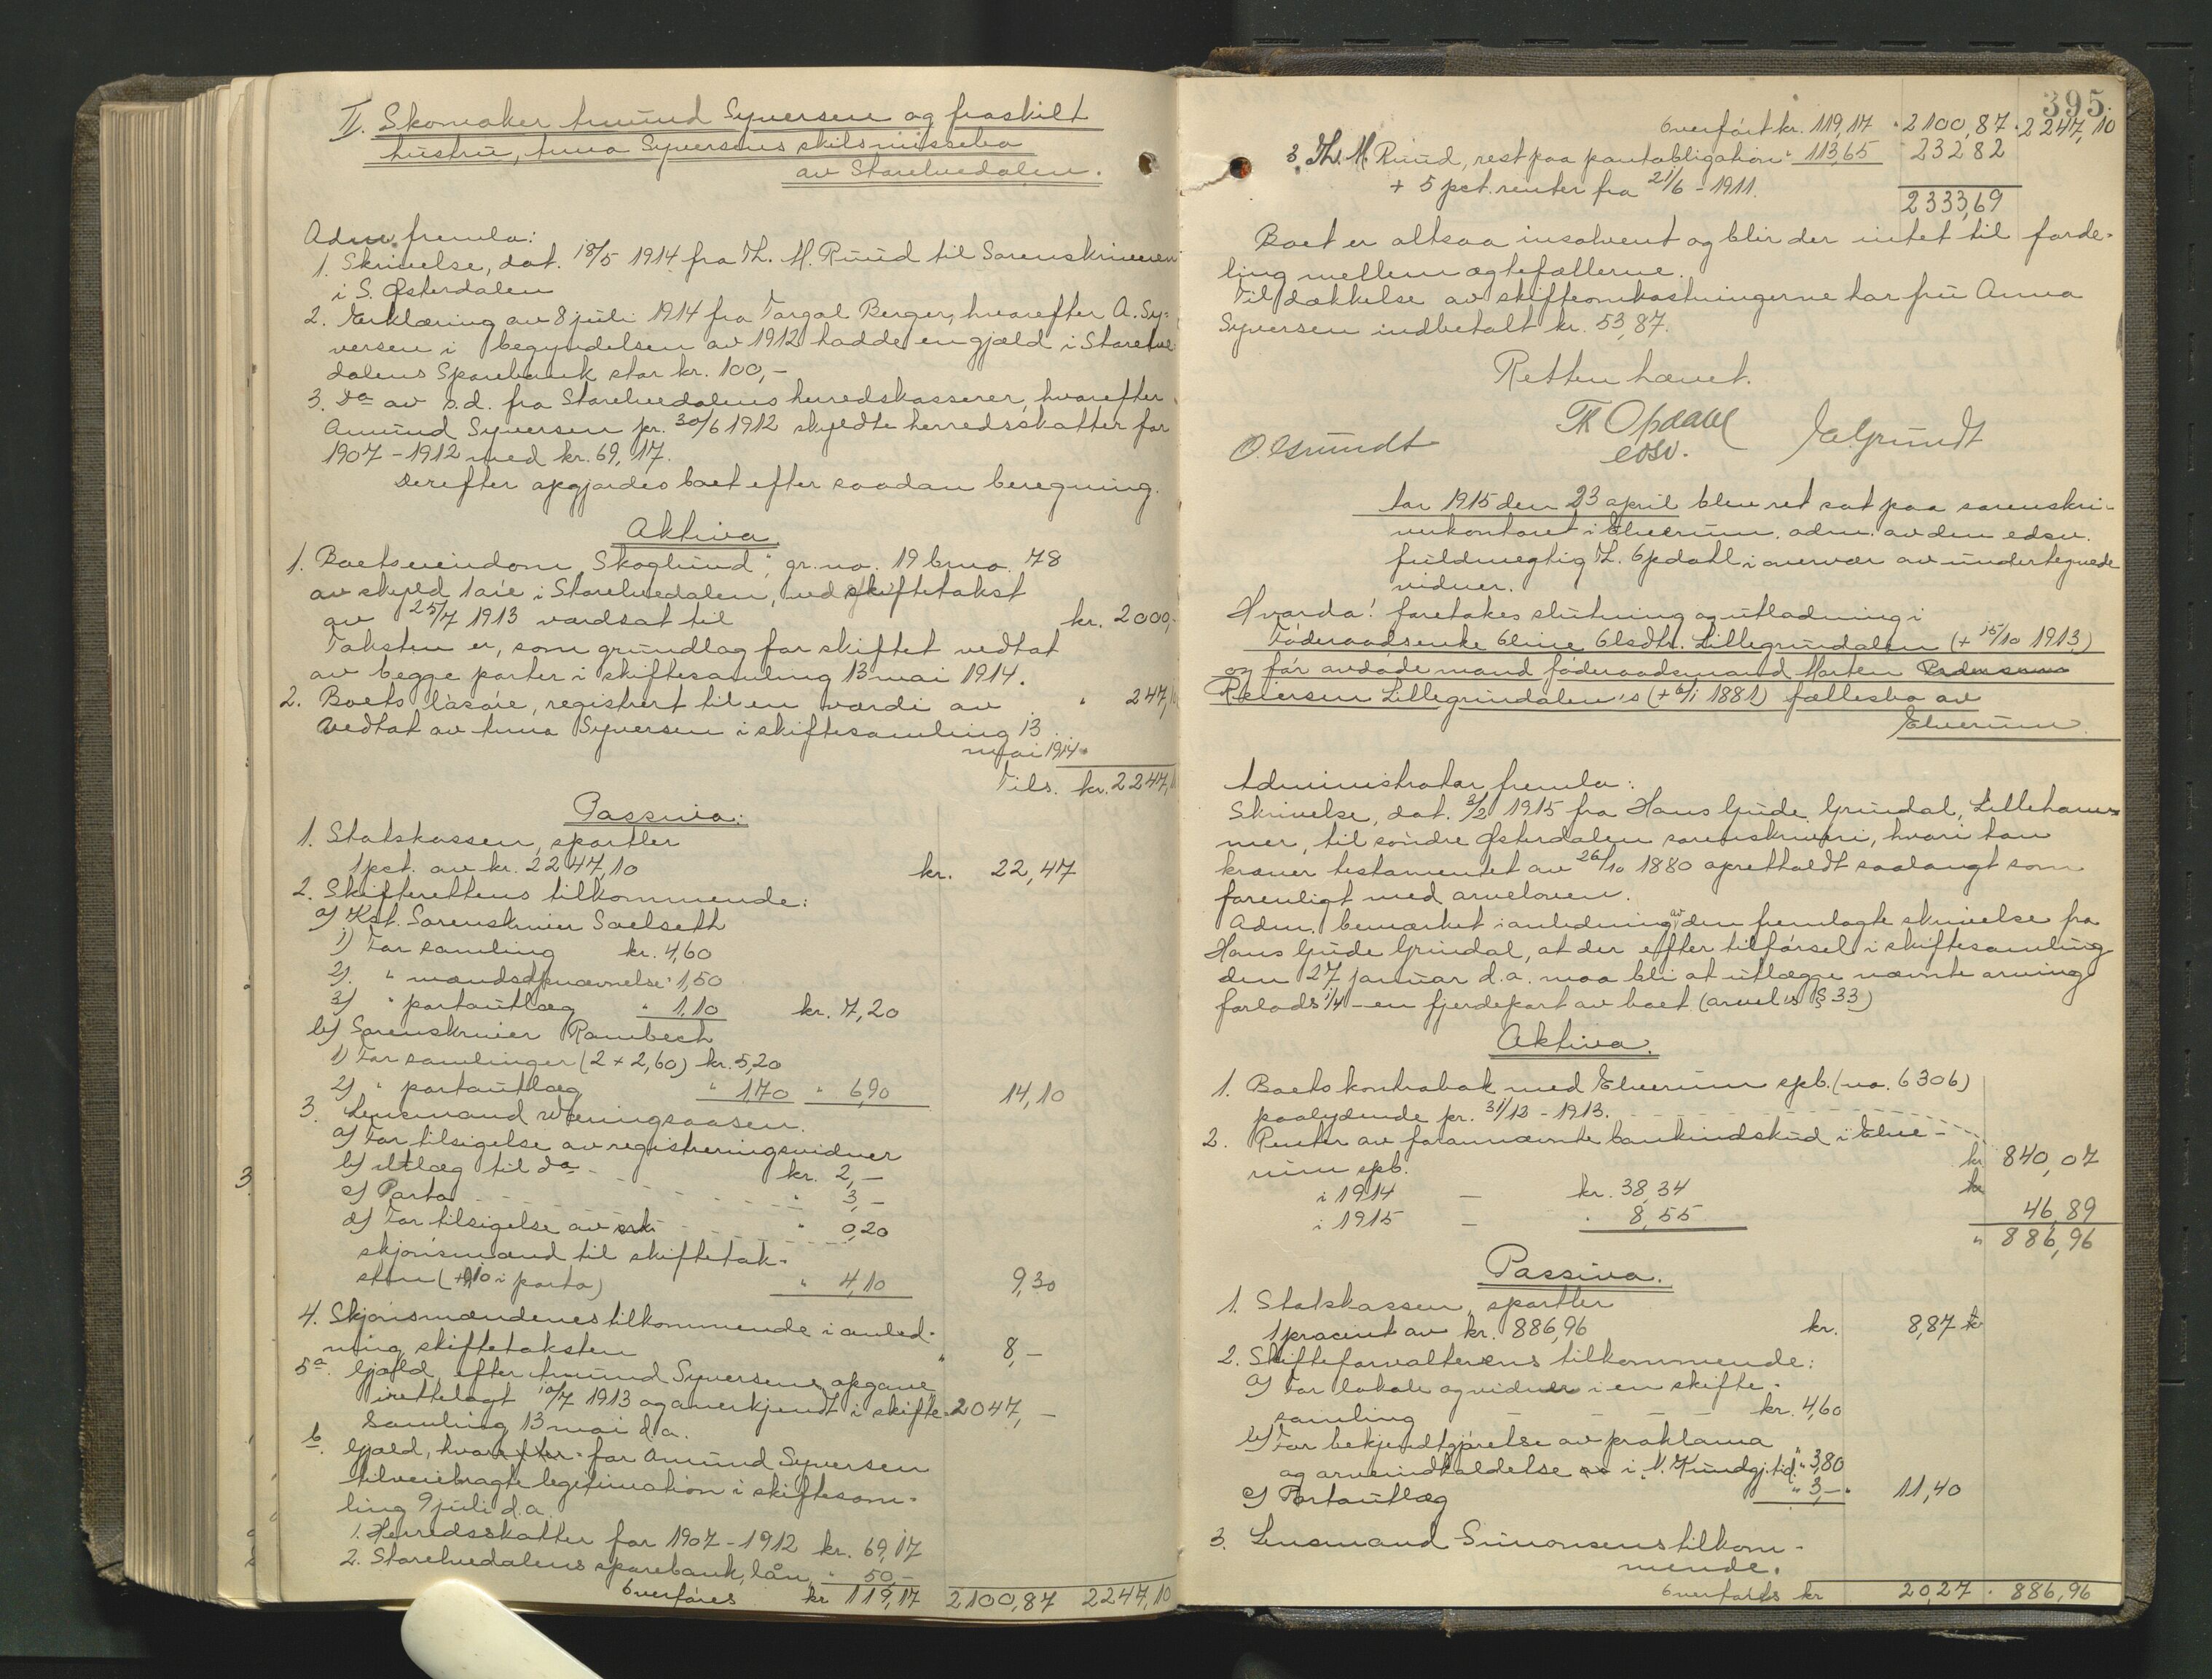 II. Skomaker Amund Syversen og fraskilt
hustru, Anna Syversens skilsmissebo
av Storelvedalen.
Adm. fremla:
1. Skrivelse, dat. 18/5 1914 fra Th. M. Ruud til Sorenskriveren
i S. Østerdalen
2. Erklæring av 8 juli 1914 fra Torgal Berger, hvorefter A. Sy=
versen i begyndelsen av 1912 hadde en gjæld i Storelve
dalens Sparebank stor kr. 100,-
3. Do av s.d. fra Storelvedalens herredskasserer, hvorefter
Amund Syversen pr. 30/6 1912 skyldte herredsskatter for
1907-1912 med kr. 69,17.
Derefter opgjordes boet efter saadan beregning.
Aktiva.
1. Boets eiendom "Skoglund", gr.no. 19 brno. 78
av skyld 1 øre i Storelvedalen, ved skiftetakst
av 25/7 1913 værdsat til kr. 2000,-
Taksten er, som grundlag for skiftet vedtat
av begge parter i skiftesamling 13 mai 1914.
2. Boets løsøre, registrert til en værdi av " 247,10
Vedtat av Anna Syversen i skiftesamling 13
mai 1914.
Tils. kr. 2247,10
Passiva:
1. Statskassen, sportler
1 pct. av kr. 2247,10 kr. 22,47
2. Skifterettens tilkommende:
a) Kst. Sorenskriver Saelseth
1) For samling kr. 4,60
2) " mændsopnævnelse " 1,50
3) " portoutlæg " 1,10 kr. 7,20
b) Sorenskriver Rambech
1) For samlinger (2 + 2,60) kr. 5,20
2) " portoutlæg " 1,70 " 6,90 14,10
3. Lensmand Wæringsaasen.
a) For tilsigelse av registreringsvidner
b) Utlæg til do - kr. 2,-
c) Porto " 3,-
d) For tilsigelse av " 0,20
skjønsmænd til skiftetak-
sten (+ 10 i porto) " 4,10 9,30
4. Skjønsmændenes tilkommende i anled-
ning skiftetaksten " 8,-
5a. Gjæld, efter Amund Syversens opgave
irettelagt 10/7 1913 og anerkjendt i skifte- 2047,-
samling 13 mai d.a.
b. Gjæld, hvorefter for Amund Syversen
tilveiebragte legitimation i skiftesam-
ling 9 juli d.a.
1. Herredsskatter for 1907-1912 kr. 69,17
2. Storelvedalens sparebank, lån " 50,-
Overføres kr 119,17 2100,87 2247,10
395.
Overført kr. 119,17 " 2100,87 " 2247,10
3. Th. M. Ruud, rest paa pantobligation " 113,65 232 82
+ 5 pct. renter fra 21/6 - 1911.
2333,69
Boet er altsaa insolvent og blir der intet til forde-
ling mellem ægtefællerne.
Til dækkelse av skifteomkostningerne har fru Anna
Syversen indbetalt kr. 53,87.
Retten hævet.
Th Opdahl
edsv.
O. Grundt
E Grundt
Aar 1915 den 23 april blev ret sat paa sorenskri-
verkontoret i Elverum. adm. av den edsv.
fuldmægtig Th. Opdahl i overvær av undertegnede
vidner.
Hvorda! foretokes slutning og utlodning i
Føderaadsenke Eline Olsdtr. Lillegrundalen (+ 15/10 1913)
og før avdøde mand føderaadsmand Morten
Reiersen Lillegrundalen's (+ 6/1 1881) fællesbo av
Elverum.
Administrator fremla:
Skrivelse, dat. 3/2 1915 fra Hans Gude Grundal, Lilleham=
mer, til søndre Østerdalen sorenskriveri, hvori han
kræver testamentet av 26/10 1880 opretholdt saalangt som
forenligt med arveloven.
Adm. bemærket i anledning av den fremlagte skrivelse fra
Hans Gude Grundal, at der efter tilførsel i skiftesamling
den 27 januar d.a. maa bli at utlægge nævnte arving
forlods 1/4 - en fjerdepart av boet (arvel's § 33)
Aktiva.
1. Boets kontrabok med Elverum spb. (no. 6306)
paalydende pr. 31/12 - 1913.
2. Renter av forannævnte bankindskud i Elve- kr 840,07
rum spb.
i 1914 - kr. 38,34
i 1915 - " 8,55 46,89
" 886,96
Passiva.
1. Statskassen, sportler
1 procent av kr. 886,96 kr. 8,87
2. Skifteforvalterens tilkommende:
a) For lokale og vidner i en skifte-
samling kr. 4,60
b) For bekjendtgjørelse av proklama
og arveindkaldelse i "N. Kundgj.tid." " 3,80
c) Portoutlæg " 3,- " 11,40
3. Lensmand Simonsens tilkom-
mende.
Overføres kr 20,27 " 886,96